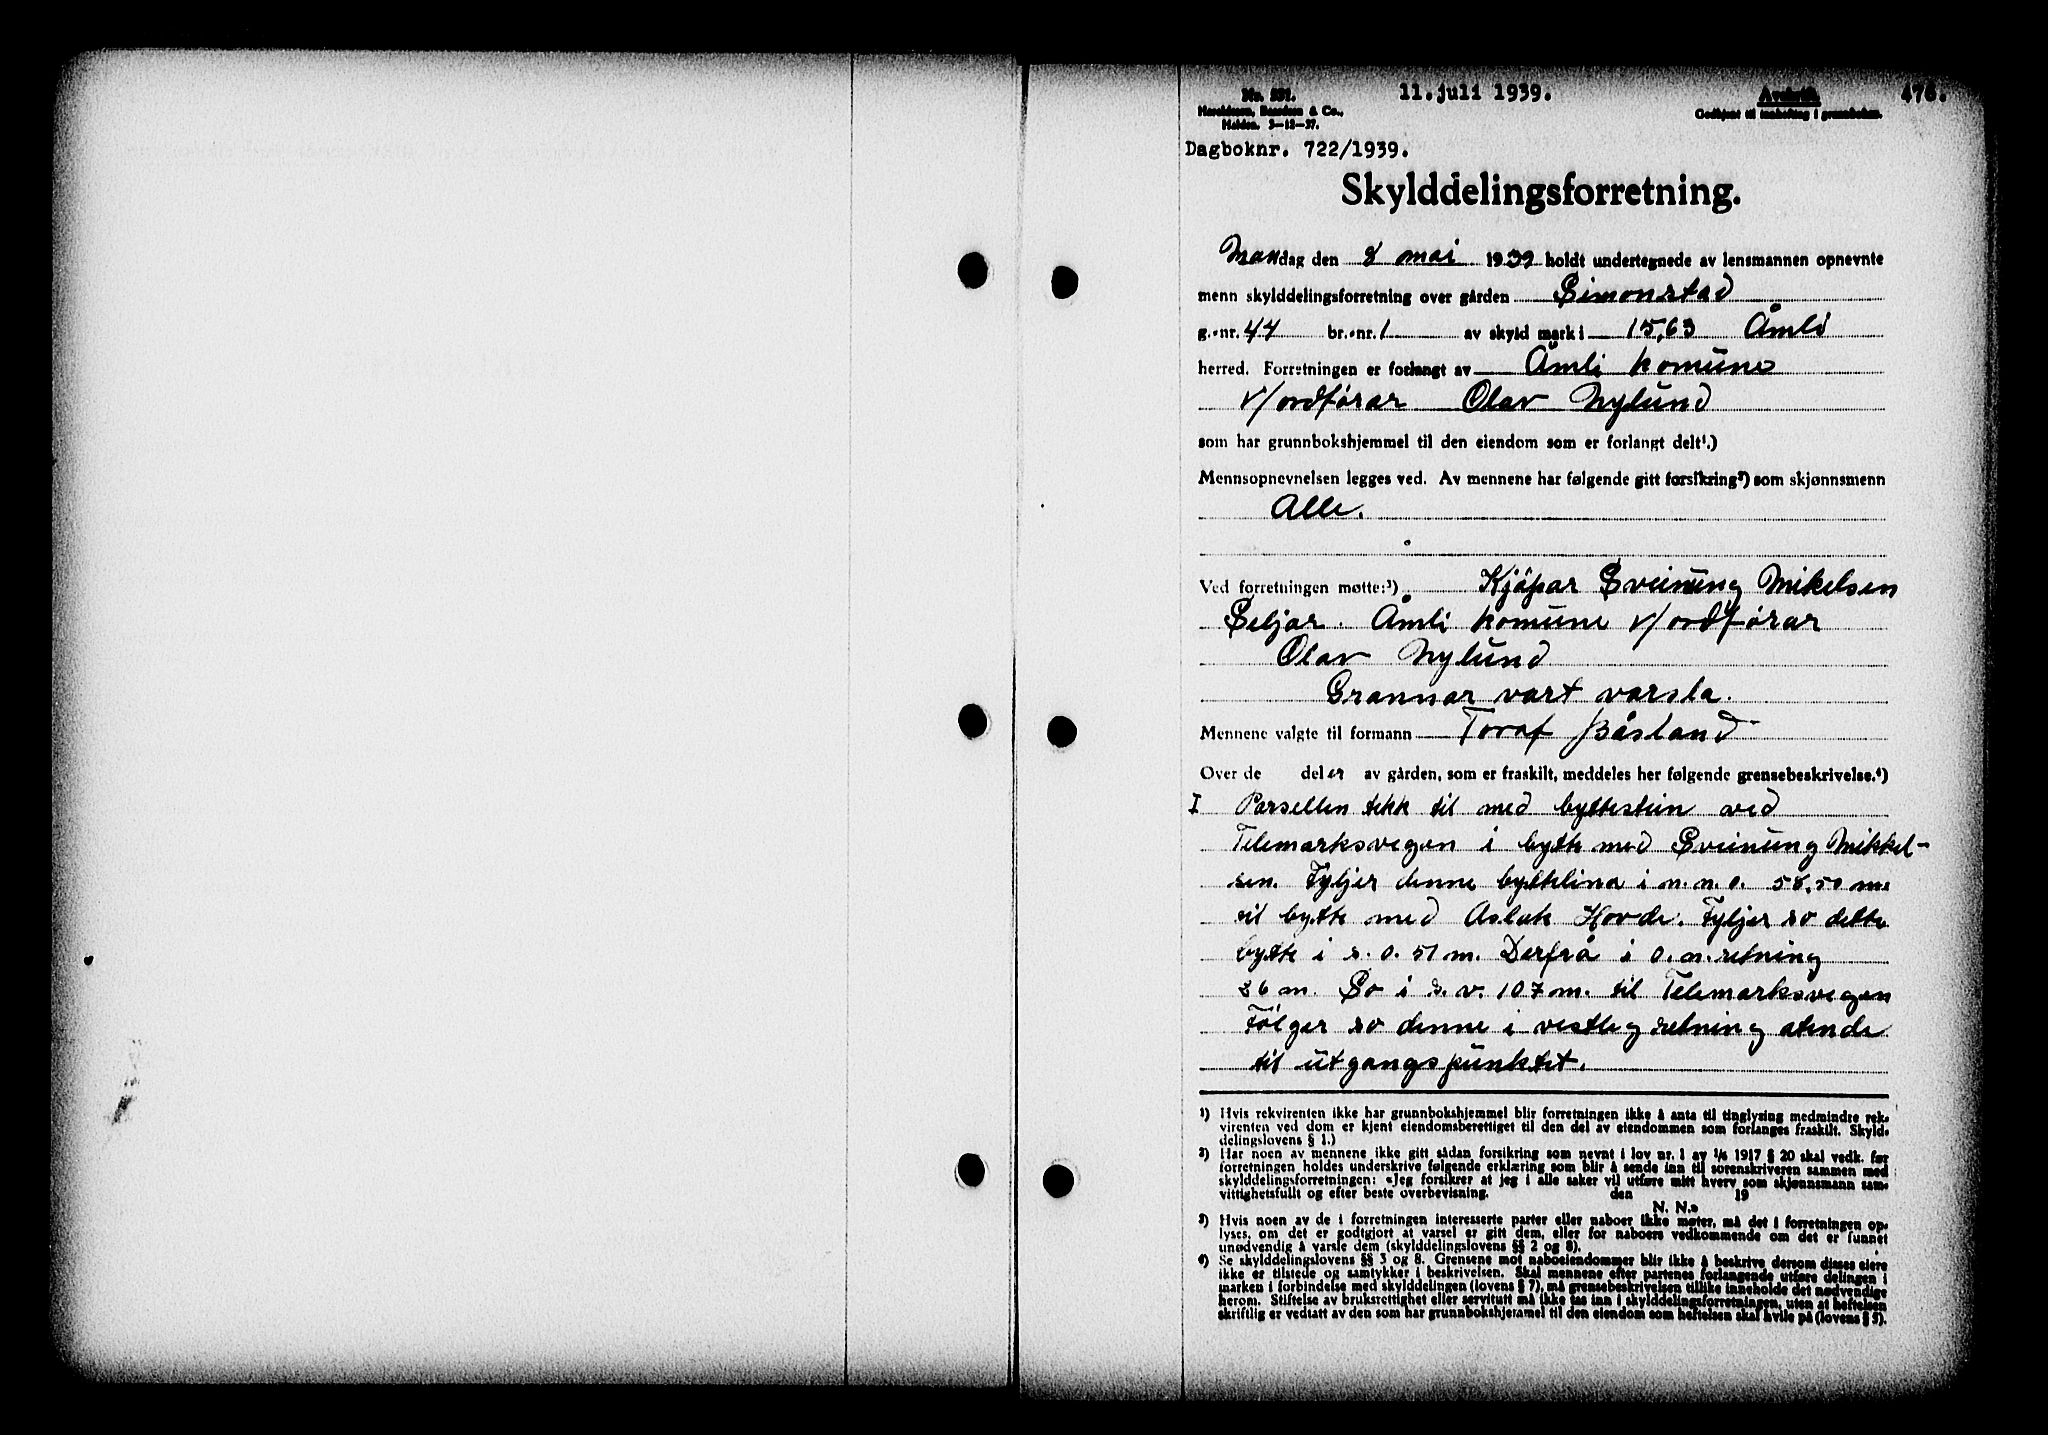 No. 391. 11. juli 1939. Avskrift. 478.
Haraldssen, Baardsen & Co., Godkjent til innhefting i grunnboken.
Halden. 3-12-37.
Dagboknr. 722/1939.
Skylddelingsforretning.
Mandag den 8 mai 1939 holdt undertegnede av lensmannen opnevnte
menn skylddelingsforretning over gården Simonstad
g.-nr. 44 br.-nr. 1 av skyld mark i 15,63 Åmli
herred. Forretningen er forlangt av Åmli komune
v/ordførar Olav Nylund
som har grunnbokshjemmel til den eiendom som er forlangt delt¹.)
Mennsopnevnelsen legges ved. Av mennene har følgende gitt forsikring²) som skjønnsmenn
Alle.
Ved forretningen møtte:³) Kjøpar Sveinung Mikelsen
Seljar. Åmli komune v/ordførar
Olav Nylund
Grannar vart varsla.
Mennene valgte til formann Toraf Båsland
Over de deler av gården, som er fraskilt, meddeles her følgende grensebeskrivelse.⁴)
I Parsellen tekk til med byttestein ved
Telemarksvegen i bytte med Sveinung Mikkel-
sen. Fyljer denne byttelina i n. n. o. 58,50 m.
til bytte med Aslak Hovde. Fyljer so dette
bytte i s. o. 51 m. Derfrå i o. n. retning
36 m. So i s. v. 107 m. til Telemarksvegen
Følger so denne i vestleg retning atende
til utgangspunktet.
¹) Hvis rekvirenten ikke har grunnbokshjemmel blir forretningen ikke å anta til tinglysing medmindre rek-
virenten ved dom er kjent eiendomsberettiget til den del av eiendommen som forlanges fraskilt. Skyld-
delingslovens § 1.)
²) Har noen av mennene ikke gitt sådan forsikring som nevnt i lov nr. 1 av 1/6 1917 § 20 skal vedk. før
forretningen holdes underskrive følgende erklæring som blir å sende inn til sorenskriveren sammen med
skylddelingsforretningen: «Jeg forsikrer at jeg i alle saker vil utføre mitt hverv som skjønnsmann sam-
vittighetsfullt og efter beste overbevisning. den 19
N. N.»
³) Hvis noen av de i forretningen interesserte parter eller naboer ikke møter, må det i forretningen op-
lyses, om det er godtgjort at varsel er gitt dem, eller for naboers vedkommende om det er funnet
unødvendig å varsle dem (skylddelingslovens §§ 2 og 8).
⁴) Se skylddelingslovens §§ 3 og 8. Grensene mot naboeiendommer blir ikke å beskrive dersom disses eiere
ikke er tilstede og samtykker i beskrivelsen. Skal mennene efter partenes forlangende utføre delingen i
marken i forbindelse med skylddelingen (lovens § 7), må grensebeskrivelsen tillike inneholde det nødvendige
herom. Stiftelse av bruksrettighet eller servitutt må ikke tas inn i skylddelingsforretningen, uten at heftelsen
skriftlig er vedtatt av den som har grunnbokshjemmel til den eiendom som heftelsen skal hvile på (lovens § 9).